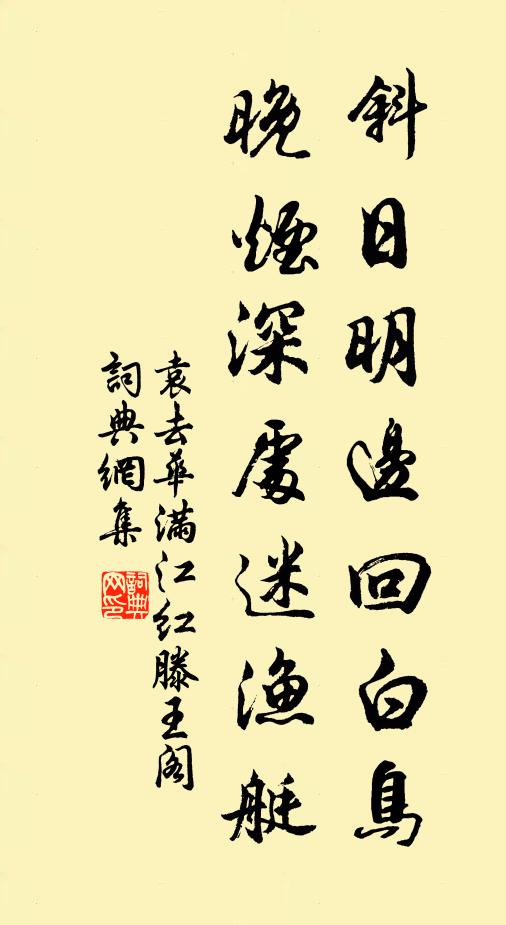 斜日明邊回白鳥
晚煙深處迷漁艇
袁去華滿江红滕王阁
詞典網集
詞典网印